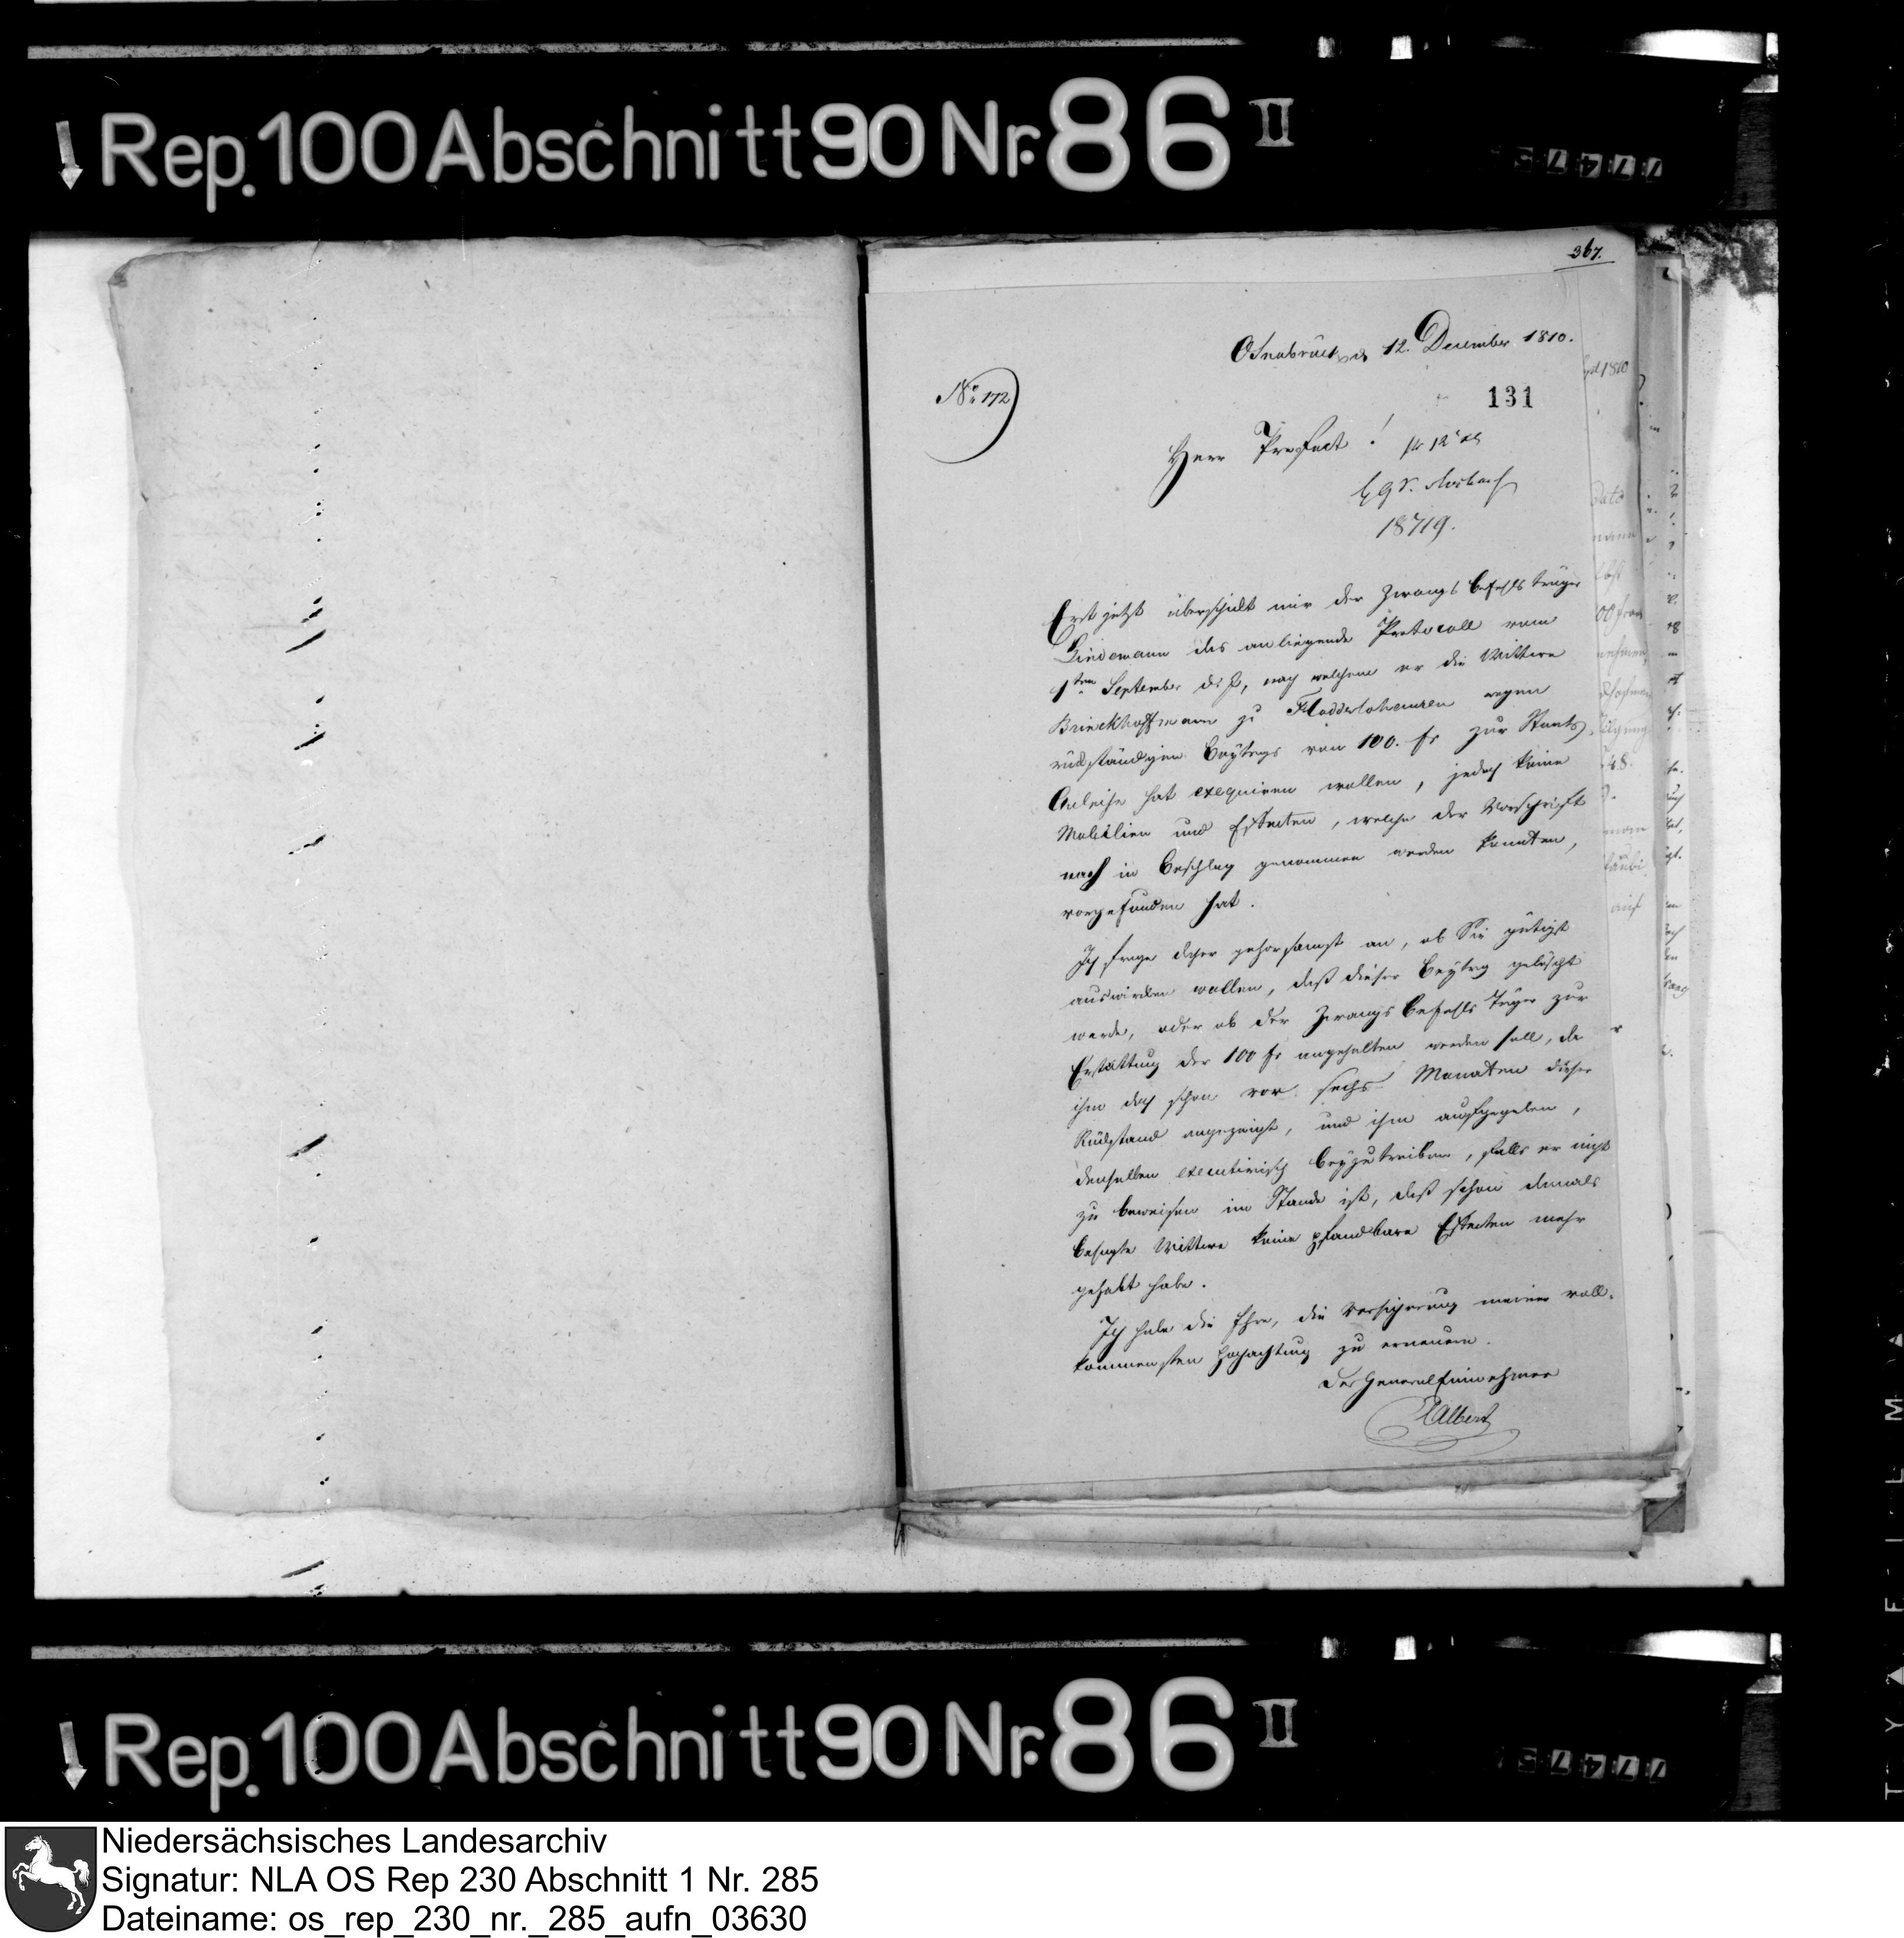 Rep. 100 Abschnitt 90 Nr. 86 II
77475
367.
Osnabrück 12. December 1810.
No. 172
131
Herr Präfect!
18719.
Erst jetzt überschickt mir der Zwangs befehls träger
Lindemann das anliegende Protocoll vom
1ten September d. J., nach welchem er die Wittwe
Brinckhoffmann zu Fladderlohausen wegen
rückständigen Beytrags von 100. fr zur Staats
Anleihe hat exequiren wollen, jedoch keine
Mobilien und Effecten, welche der Vorschrift
nach in Beschlag genommen werden konnten,
vorgefunden hat.
Ich frage daher gehorsamst an, ob Sie gütigst
auswirken wollen, daß dieser Beytrag gelöscht
werde, oder ob der Zwangs Befehls Träger zur
Erstattung der 100 fr angehalten werden soll, da
ihm doch schon vor sechs Monaten dieser
Rückstand angezeigt, und ihm aufgegeben,
denselben executivisch beyzutreiben, falls er nicht
zu beweisen im Stande ist, daß schon damals
besagte Wittwe keine pfandbare Effecten mehr
gehabt habe.
Ich habe die Ehre, die Versicherung meiner voll-
kommensten Hochachtung zu erneuern.
Der General Einnehmer
Albert
Rep. 100 Abschnitt 90 Nr. 86 II
77475
Niedersächsisches Landesarchiv
Signatur: NLA OS Rep 230 Abschnitt 1 Nr. 285
Dateiname: os_rep_230_nr._285_aufn_03630